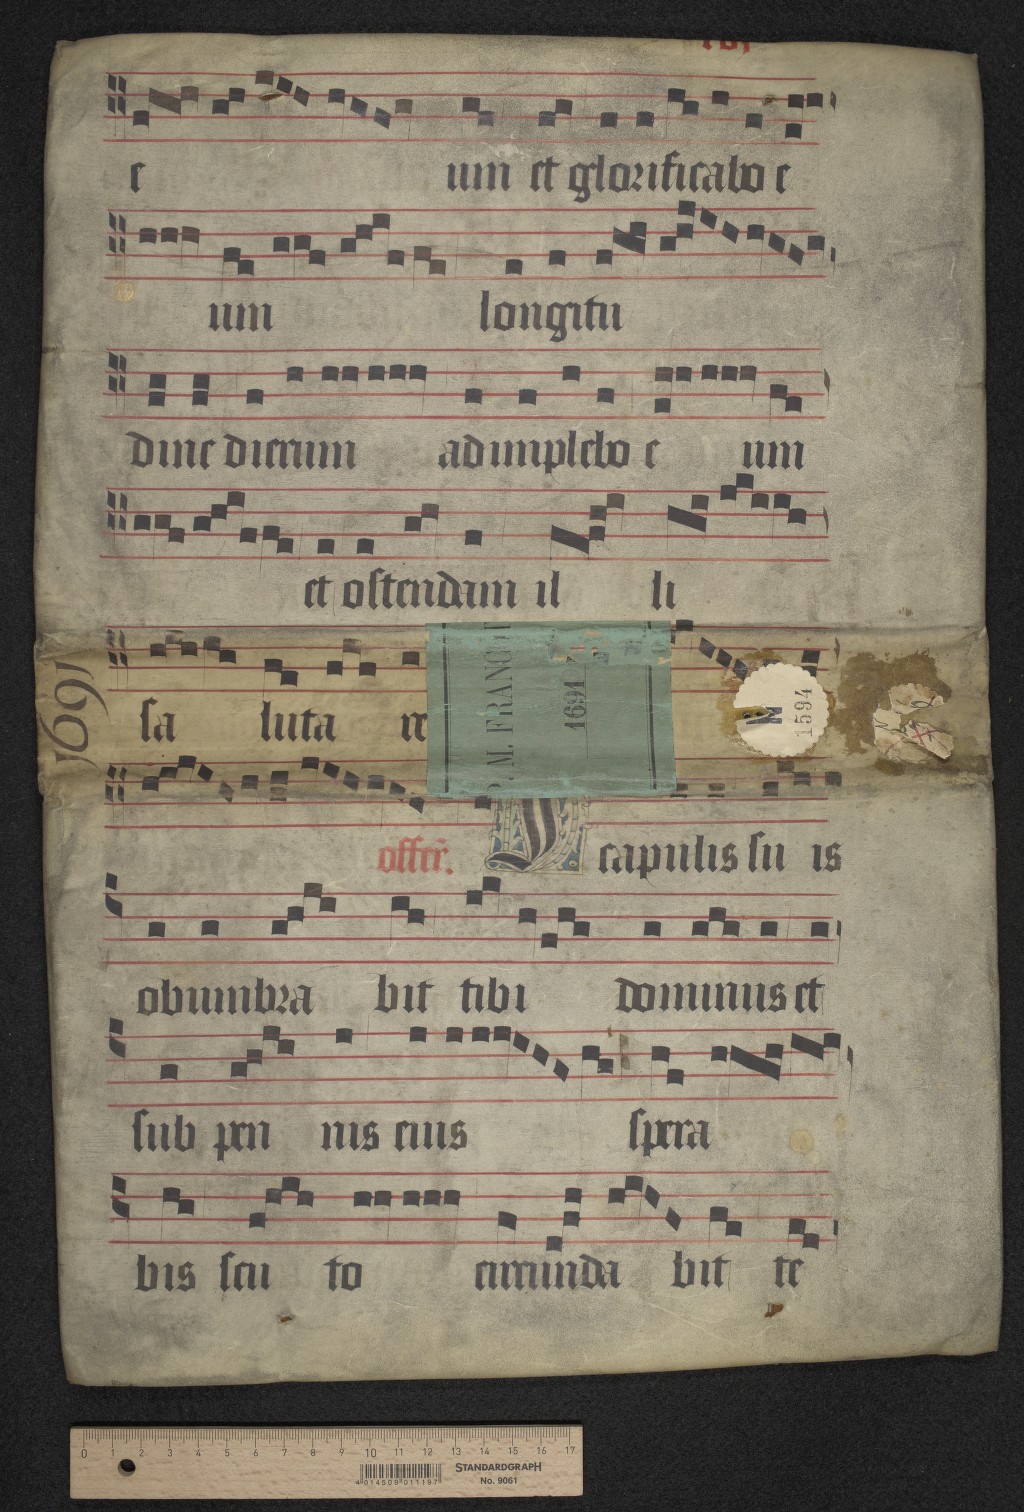 e um et glorificabo e
um longitu
dine dierum adimplebo e um
et ostendam il li
sa luta re
1691
P. M. FRANC
1691
N
1594
offer. Scapulis su is
obumbra bit tibi dominus et
sub pen nis eius spera
bis scu to circunda bit te
0 1 2 3 4 5 6 7 8 9 10 11 12 13 14 15 16 17
STANDARDGRAPH
No. 9061
4 014509 011197